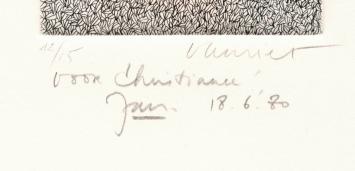 12/15
voor Christiane!
Jan. 18.6.80